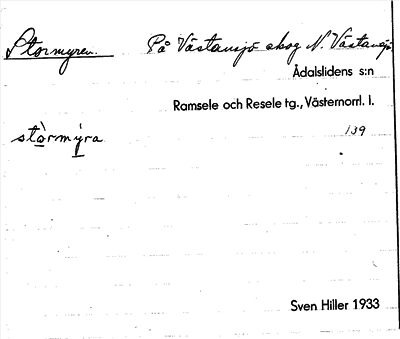 Stormyren. På Västansjö skog N. Västansjö
Ådalslidens s:n
Ramsele och Resele tg., Västernorrl. l.
139
stòrmýra
Sven Hiller 1933